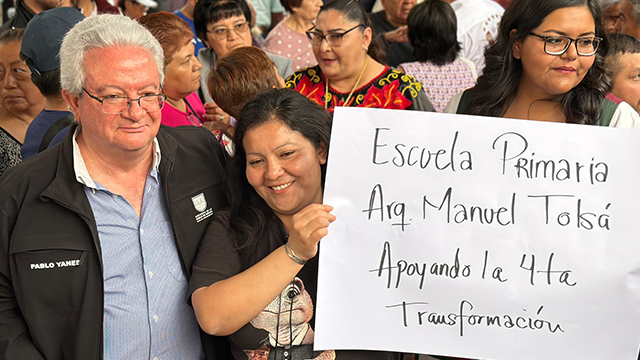 PABLO YANES
Escuela Primaria
Arq. Manuel Tolsá
Apoyando la 4ta
Transformación